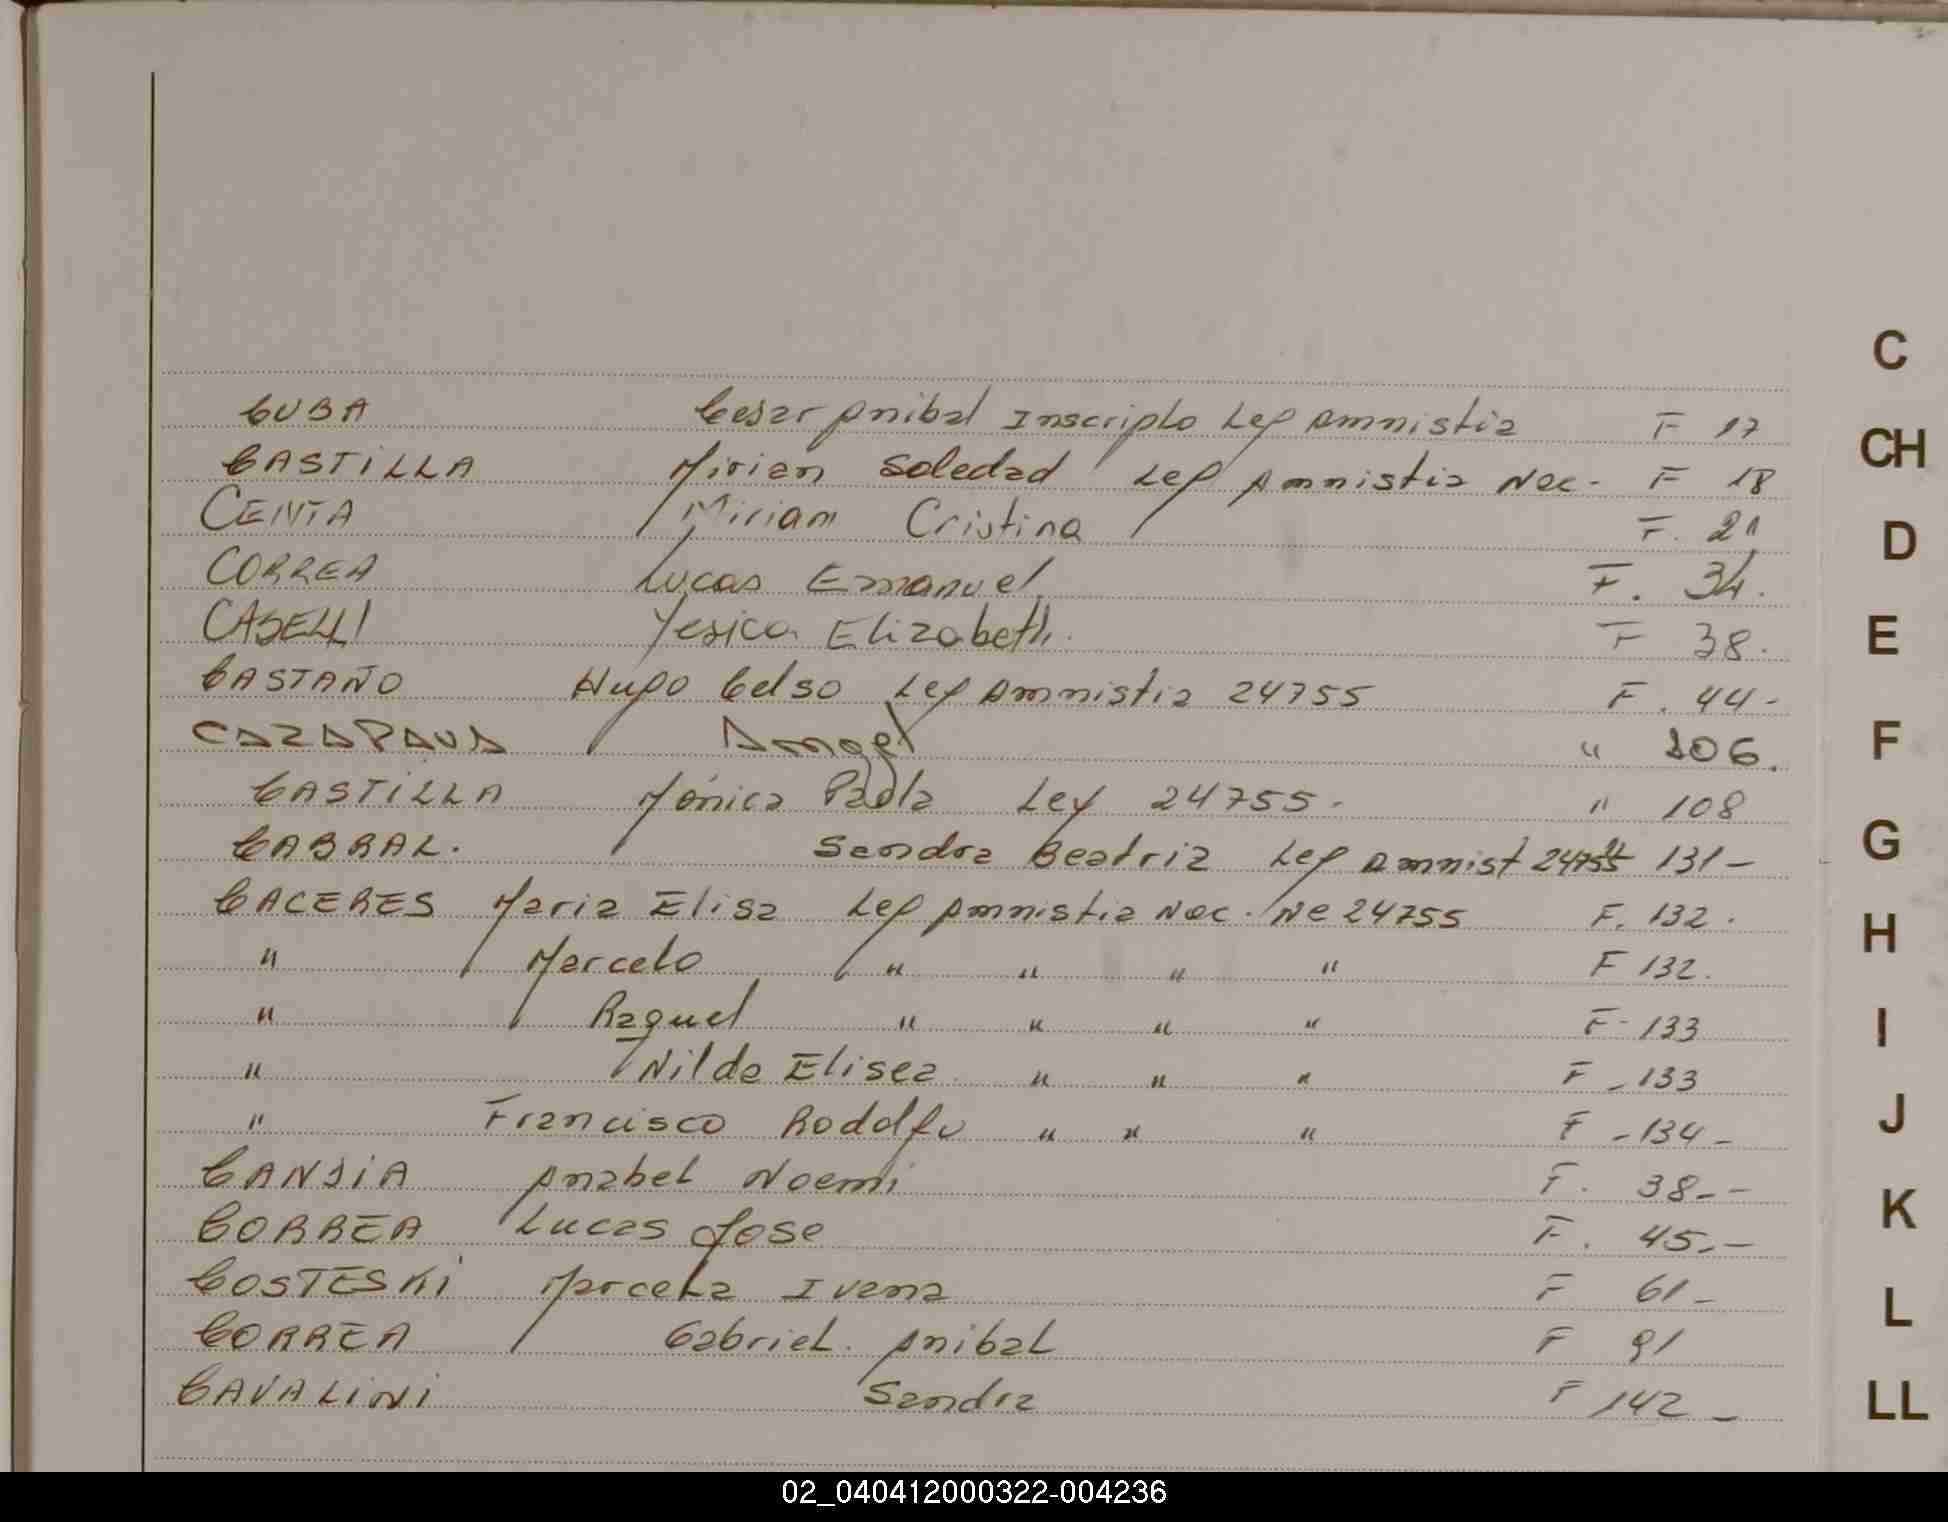 CUBA Cesar Anibal Inscripto Ley Amnistia F 17
CASTILLA Mirian Soledad Ley Amnistia Nac. F 18
CENTA Miriam Cristina F. 21
CORREA Lucas Emanuel. F. 34.
CASELLI Yesica Elizabeth. F 38.
CASTAÑO Hugo Celso Ley Amnistia 24755 F. 44-
CAZAPAVA Angel " 106.
CASTILLA Mónica Paola Ley 24755. " 108
CABRAL. Sandra Beatriz Ley Amnist 24755 131-
CACERES Maria Elisa Ley Amnistia Nac. Nº 24755 F. 132.
" Marcelo " " " " F 132.
" Raquel " " " " F- 133
" Nilda Elisea " " " F - 133
" Francisco Rodolfo " " " F - 134-
CANSIA Anabel Noemi F. 38.--
CORREA Lucas Jose F. 45.-
COSTESKI Marcela Ivana F 61-
CORREA Gabriel. Anibal F 91
CAVALINI Sandra F 142-
C
CH
D
E
F
G
H
I
J
K
L
LL
02_040412000322-004236